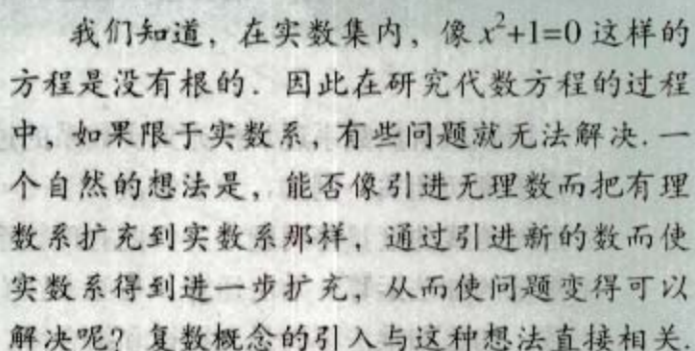 我们知道，在实数集内，像x²+1=0这样的
方程是没有根的．因此在研究代数方程的过程
中，如果限于实数系，有些问题就无法解决．一
个自然的想法是，能否像引进无理数而把有理
数系扩充到实数系那样，通过引进新的数而使
实数系得到进一步扩充，从而使问题变得可以
解决呢？复数概念的引入与这种想法直接相关．